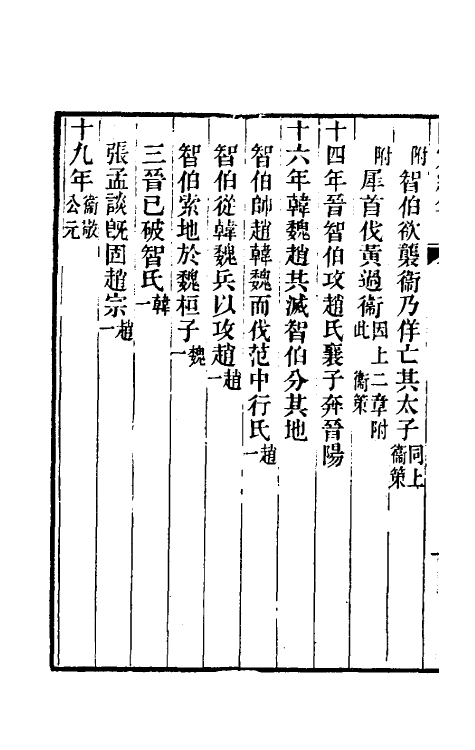 附智伯欲襲衞乃佯亡其太子同上衞策
附犀首伐黃過衞因上二章附此 衞策
十四年晉智伯攻趙氏襄子奔晉陽
十六年韓魏趙共滅智伯分其地
智伯帥趙韓魏而伐范中行氏趙一
智伯從韓魏兵以攻趙趙一
智伯索地於魏桓子魏一
三晉已破智氏韓一
張孟談旣固趙宗趙一
十九年衞敬公元